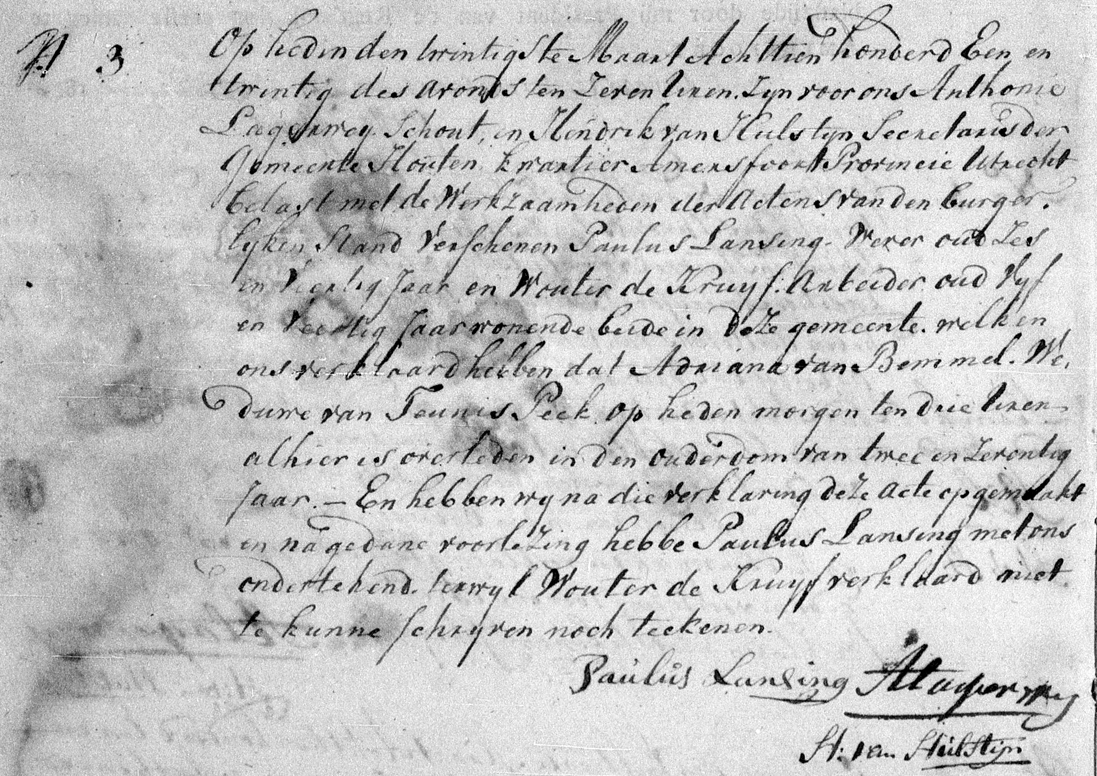 N 3
Op heden den twintigste Maart Achttien honderd Een en
twintig des avonds ten Zeven uren. Zyn voor ons Anthonie
Lagerwey Schout, en Hendrik van Hulstyn Secretaris der
Gemeente Houten kwartier Amersfoort Provincie Utrecht
belast met de Werkzaamheden der Actens van den burger,
lyken Stand Verschenen Paulus Lansing. Wever oud Zes
en Veertig Jaar en Wouter de Kruyf. Arbeider oud Vyf
en Veertig Jaar wonende beide in deze gemeente. welk en
ons verklaard hebben dat Adriana van Bemmel. We,
duwe van Teunis Peek op heden morgen ten drie uren
alhier is overleden in den ouderdom van twee en Zeventig
Jaar. — En hebben wy na die verklaring deze acte opgemaakt
en na gedane voorlezing hebbe Paulus Lansing met ons
ondertekend. terwyl Wouter de Kruyf verklaard niet
te kunne schryven noch teekenen.
Paulus Lansing ALagerwey
H: van Hulstijn